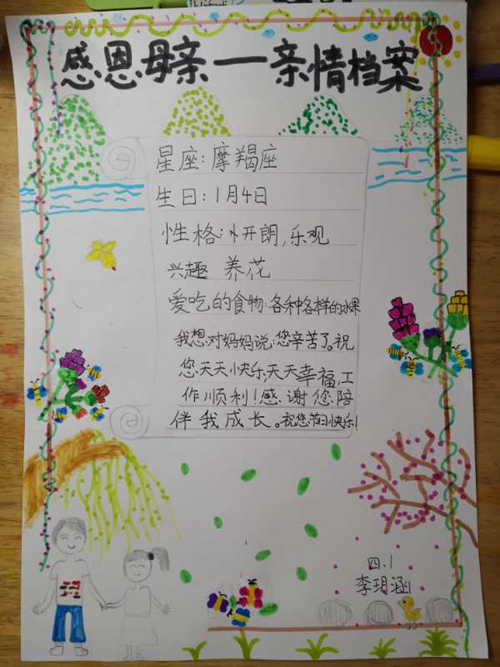 感恩母亲一亲情档案
星座:摩羯座
生日:1月4日
性格:开朗,乐观
兴趣 养花
爱吃的食物:各种各样的水果
我想对妈妈说:您辛苦了。祝
您天天快乐,天天幸福,工
作顺利!感谢您陪
伴我成长。祝您节日快乐!
四.1
李玥涵